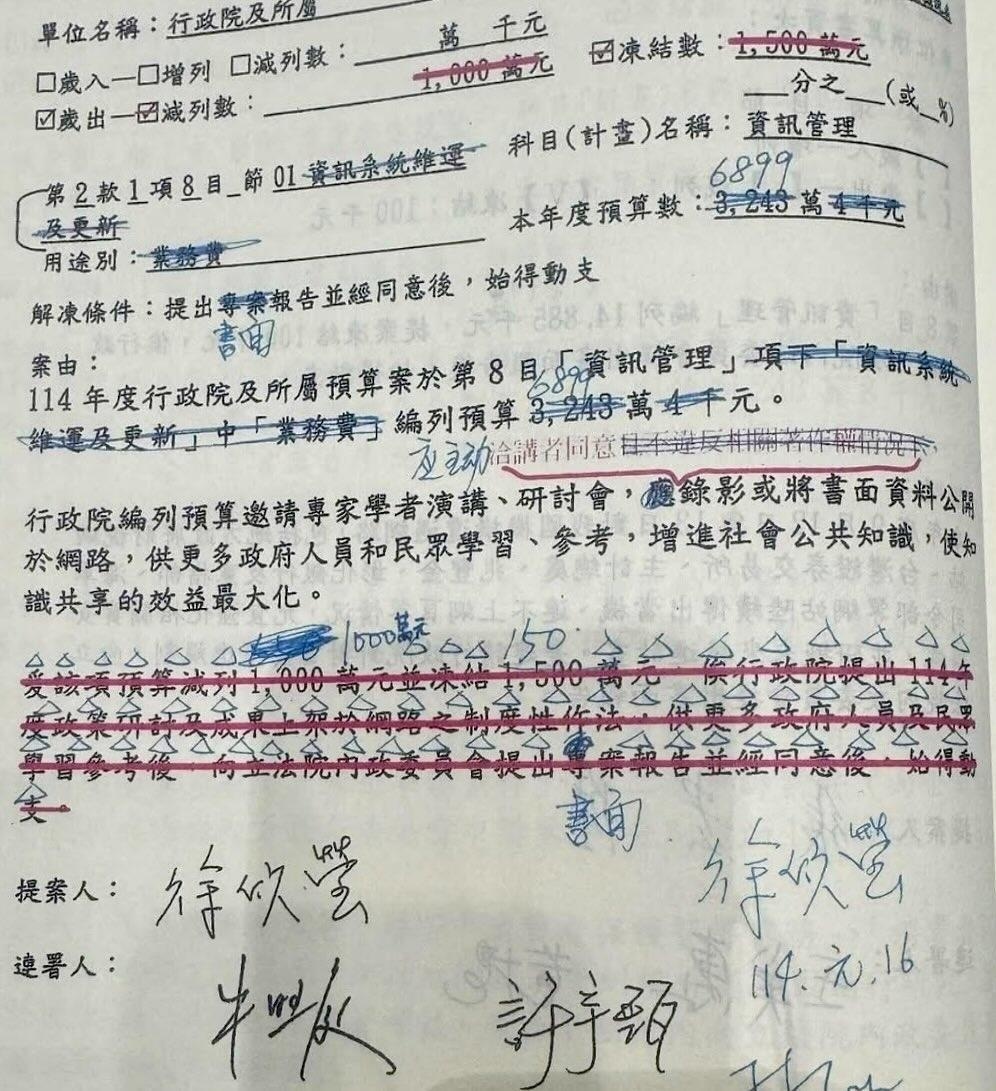 單位名稱：行政院及所屬
□歲入—□增列 □減列數：＿＿萬 千元 ☑凍結數：1,500萬元
☑歲出—☑減列數：1,000萬元 ＿＿分之＿＿(或＿%)
第2款1項8目_節01資訊系統維運 科目(計畫)名稱：資訊管理
6899
及更新 本年度預算數：3,243萬4千元
用途別：業務費
解凍條件：提出專案報告並經同意後，始得動支
書面
案由：
6899
114年度行政院及所屬預算案於第8目「資訊管理」項下「資訊系統
維運及更新」中「業務費」編列預算3,243萬4千元。
应主动洽講者同意且不違反相關著作權情況下，
行政院編列預算邀請專家學者演講、研討會，應錄影或將書面資料公開
於網路，供更多政府人員和民眾學習、參考，增進社會公共知識，使知
識共享的效益最大化。
1000萬元 150
爰該項預算減列1,000萬元並凍結1,500萬元，俟行政院提出114年
度政策研討及成果上架於網路之制度性作法，供更多政府人員及民眾
學習參考後，向立法院內政委員會提出專案報告並經同意後，始得動
支。
書面
提案人：徐欣瑩 徐欣瑩
連署人：牛煦庭 許宇甄 114.元.16